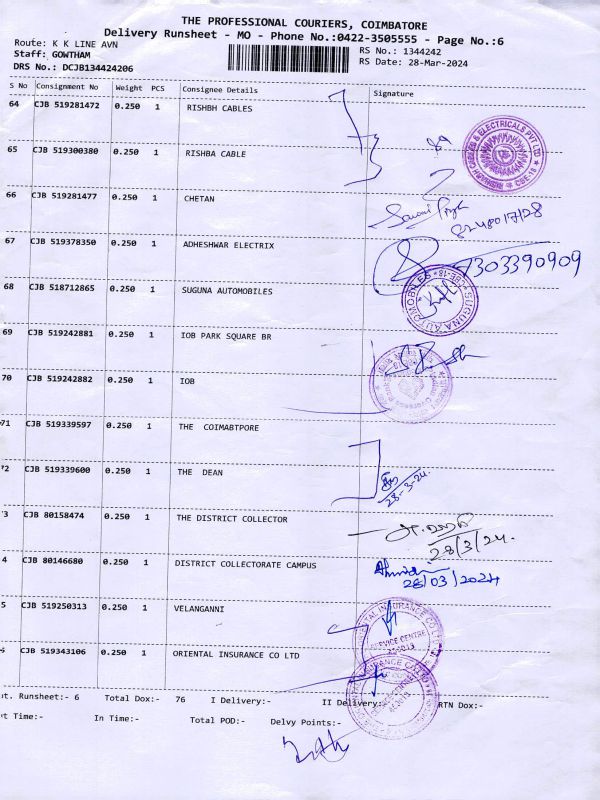 THE PROFESSIONAL COURIERS, COIMBATORE
Delivery Runsheet - MO - Phone No.:0422-3505555 - Page No.:6
Route: K K LINE AVN
RS No.: 1344242
Staff: GOWTHAM
RS Date: 28-Mar-2024
DRS No.: DCJB134424206
S No Consignment No Weight PCS Consignee Details Signature
64 CJB 519281472 0.250 1 RISHBH CABLES
65 CJB 519300380 0.250 1 RISHBA CABLE
CABLES & ELECTRICALS PVT LTD
66 CJB 519281477 0.250 1 CHETAN
67 CJB 519378350 0.250 1 ADHESHWAR ELECTRIX
7303390909
68 CJB 518712865 0.250 1 SUGUNA AUTOMOBILES
SUGUNA AUTOMOBILES * CBE-18 *
69 CJB 519242881 0.250 1 IOB PARK SQUARE BR
70 CJB 519242882 0.250 1 IOB
71 CJB 519339597 0.250 1 THE COIMABTPORE
72 CJB 519339600 0.250 1 THE DEAN
28-3-24.
3 CJB 80158474 0.250 1 THE DISTRICT COLLECTOR
28/3/24.
4 CJB 80146680 0.250 1 DISTRICT COLLECTORATE CAMPUS
28/03/2024
5 CJB 519250313 0.250 1 VELANGANNI
ORIENTAL INSURANCE CO LTD
SERVICE CENTRE
6 CJB 519343106 0.250 1 ORIENTAL INSURANCE CO LTD
t. Runsheet:- 6 Total Dox:- 76 I Delivery:- II Delivery:- RTN Dox:-
t Time:- In Time:- Total POD:- Delvy Points:-